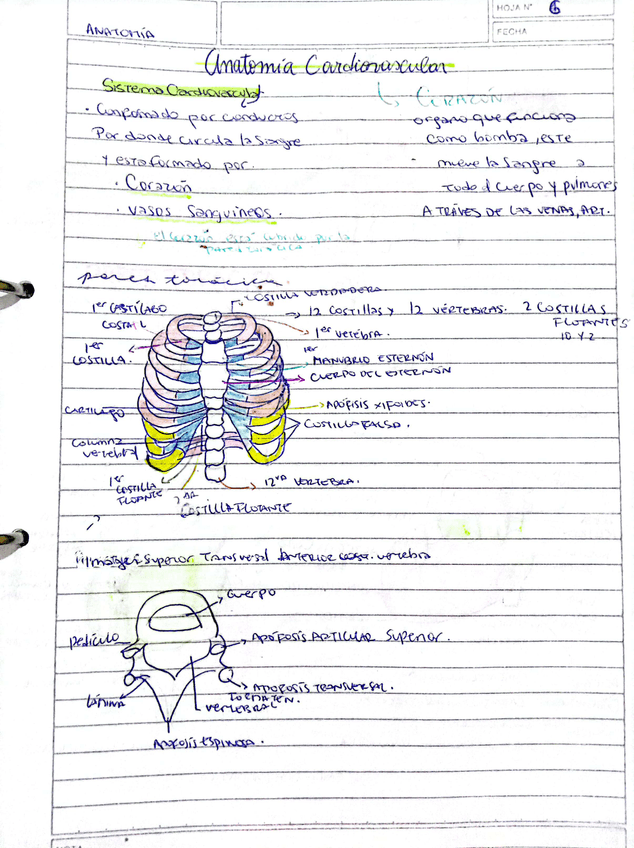 HOJA N° 6
FECHA
ANATOMÍA
Anatomía Cardiovascular
Sistema Cardiovascular
• Conformado por conductos
Por donde circula la Sangre
y esta formado por.
• Corazón
• vasos Sanguineos.
CORAZÓN
organo que funciona
como bomba, este
mueve la Sangre a
Todo el cuerpo y pulmones
A TRAVÉS DE LAS VENAS, ART.
COSTILLA VERDADERA.
12 COSTILLAS y 12 VÉRTEBRAS. 2 COSTILLAS
FLOTANTES
1er CARTÍLAGO
COSTAL
1er vertebra.
1er
COSTILLA.
1er
MANUBRIO ESTERNÓN
CUERPO DEL ESTERNÓN
CARTILAGO
APÓFISIS XIFOIDES.
COSTILLA FALSA.
Columna
vertebral
1er
COSTILLA
FLOTANTE
12va VERTEBRA.
COSTILLA FLOTANTE
Superior Transversal Anterior vertebra
Cuerpo
pedículo
APÓFOSIS ARTICULAR Superior.
APOFOSIS TRANSVERSAL.
lámina
VERTEBRAL
APOFOSIS ESPINOSA.
NOTA